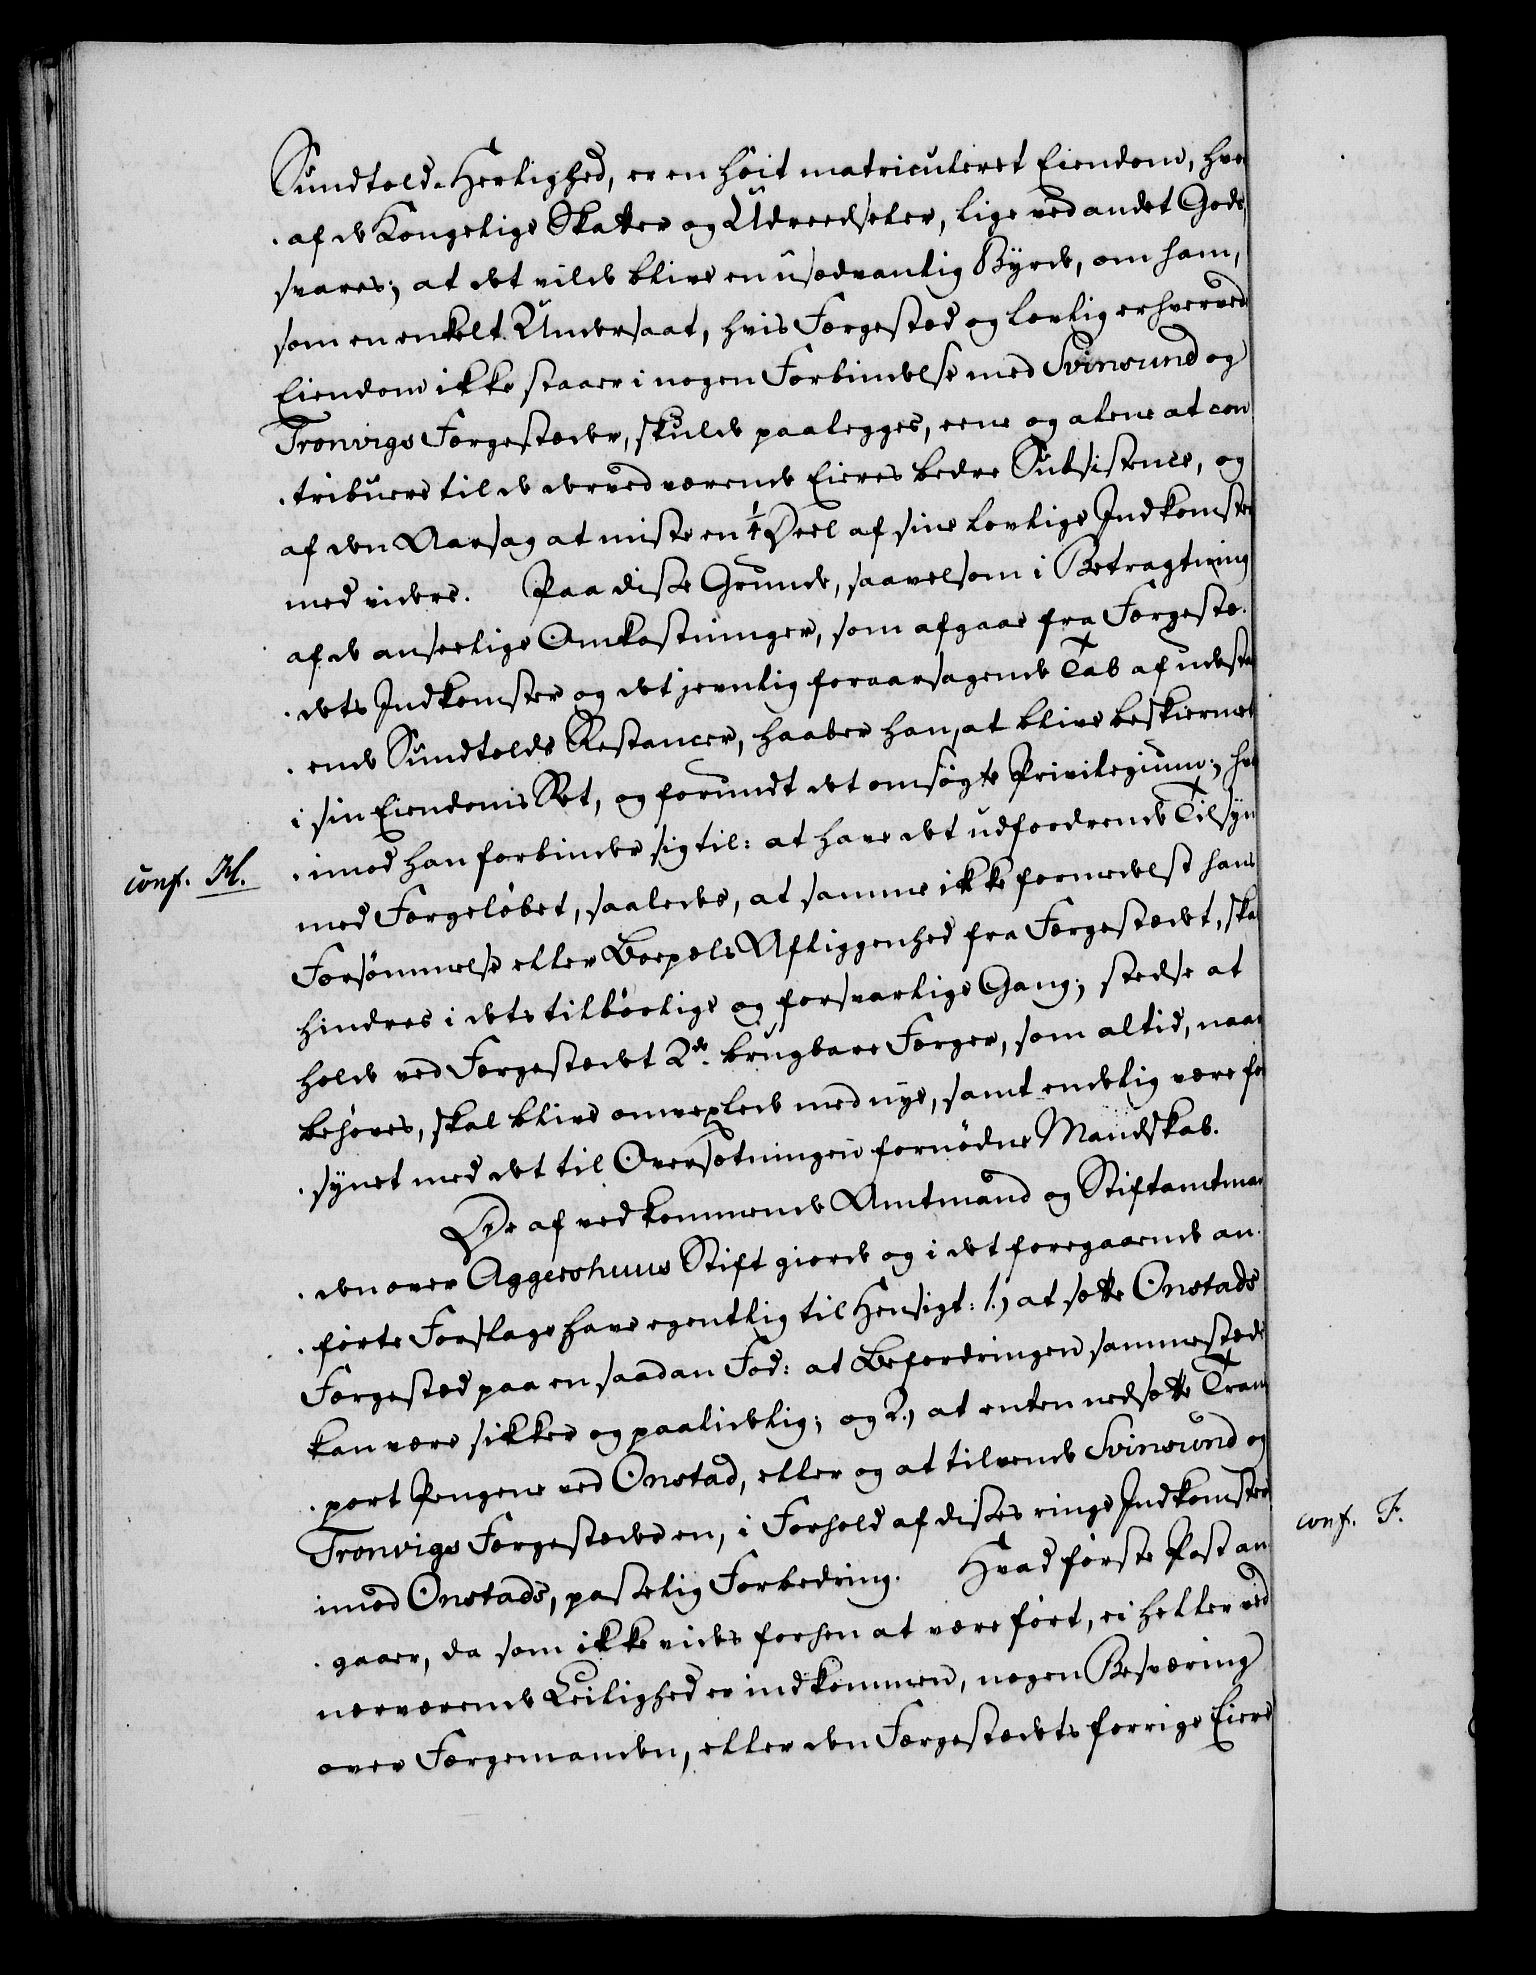 Sundtold-Herlighed, er en høit matriculeret Eiendom, hvor
af de Kongelige Skatter og Udreedseler, lige ved andet Gods
svares; at det vilde blive en usædvanlig Byrde, om ham,
som en enkelt Undersaat, hvis Færgestæd og lovlig erhvervede
Eiendom ikke staaer i nogen Forbindelse med Svinesund og
Tronvigs Færgestæder, skulde paalegges, eene og alene at con
tribuere til de derved værende Eieres bedre Subsistence, og
af den Aarsag at miste en ¼ Deel af sine lovlige Indkomster
med videre. Paa disse Grunde, saavelsom i Betragtning
af de anseelige Omkostninger, som afgaae fra Færgestæ-
dets Indkomster og det jevnlig foraarsagende Tab af udestaa
ende Sundtolds Restancer, haaber han, at blive beskiermet
i sin Eiendoms Ret, og forundt det ansøgte Privilegium; hvor
imod han forbinder sig til: at have det udfordrende Tilsyn
conf. H.
med Færgeløbet, saaledes, at samme ikke formedelst hans
Forsømmelse eller Boepæls Afliggenhed fra Færgestædet, skal
hindres i dets tilbørlige og forsvarlige Gang; stedse at
holde ved Færgestædet 2de brugbare Færger, som altid, naar
behøves, skal blive omvexlede med nye, samt endelig være for
synet med det til Oversætningen fornødne Mandskab.
De af vedkommende Amtmand og Stiftamtman
den over Aggershuus Stift giorde og i det foregaaende an-
førte Forslage have egentlig til Hensigt: 1.) at sætte Onstads
Færgestæd paa en saadan Fod: at Befordringen sammestæds
kan være sikker og paalidelig; og 2.) at enten nedsætte Trans
port Pengene ved Onstad, eller og at tilvende Svinesund og
Tronvigs Færgestæder en, i Forhold af disses ringe Indkomster
conf. F.
imod Onstads, passelig Forbedring. Hvad første Post an
gaaer, da som ikke vides forhen at være ført, ei heller ved
nærværende Leilighed er indkommen, nogen Besværing
over Færgemanden, eller den Færgestædets forrige Eiere